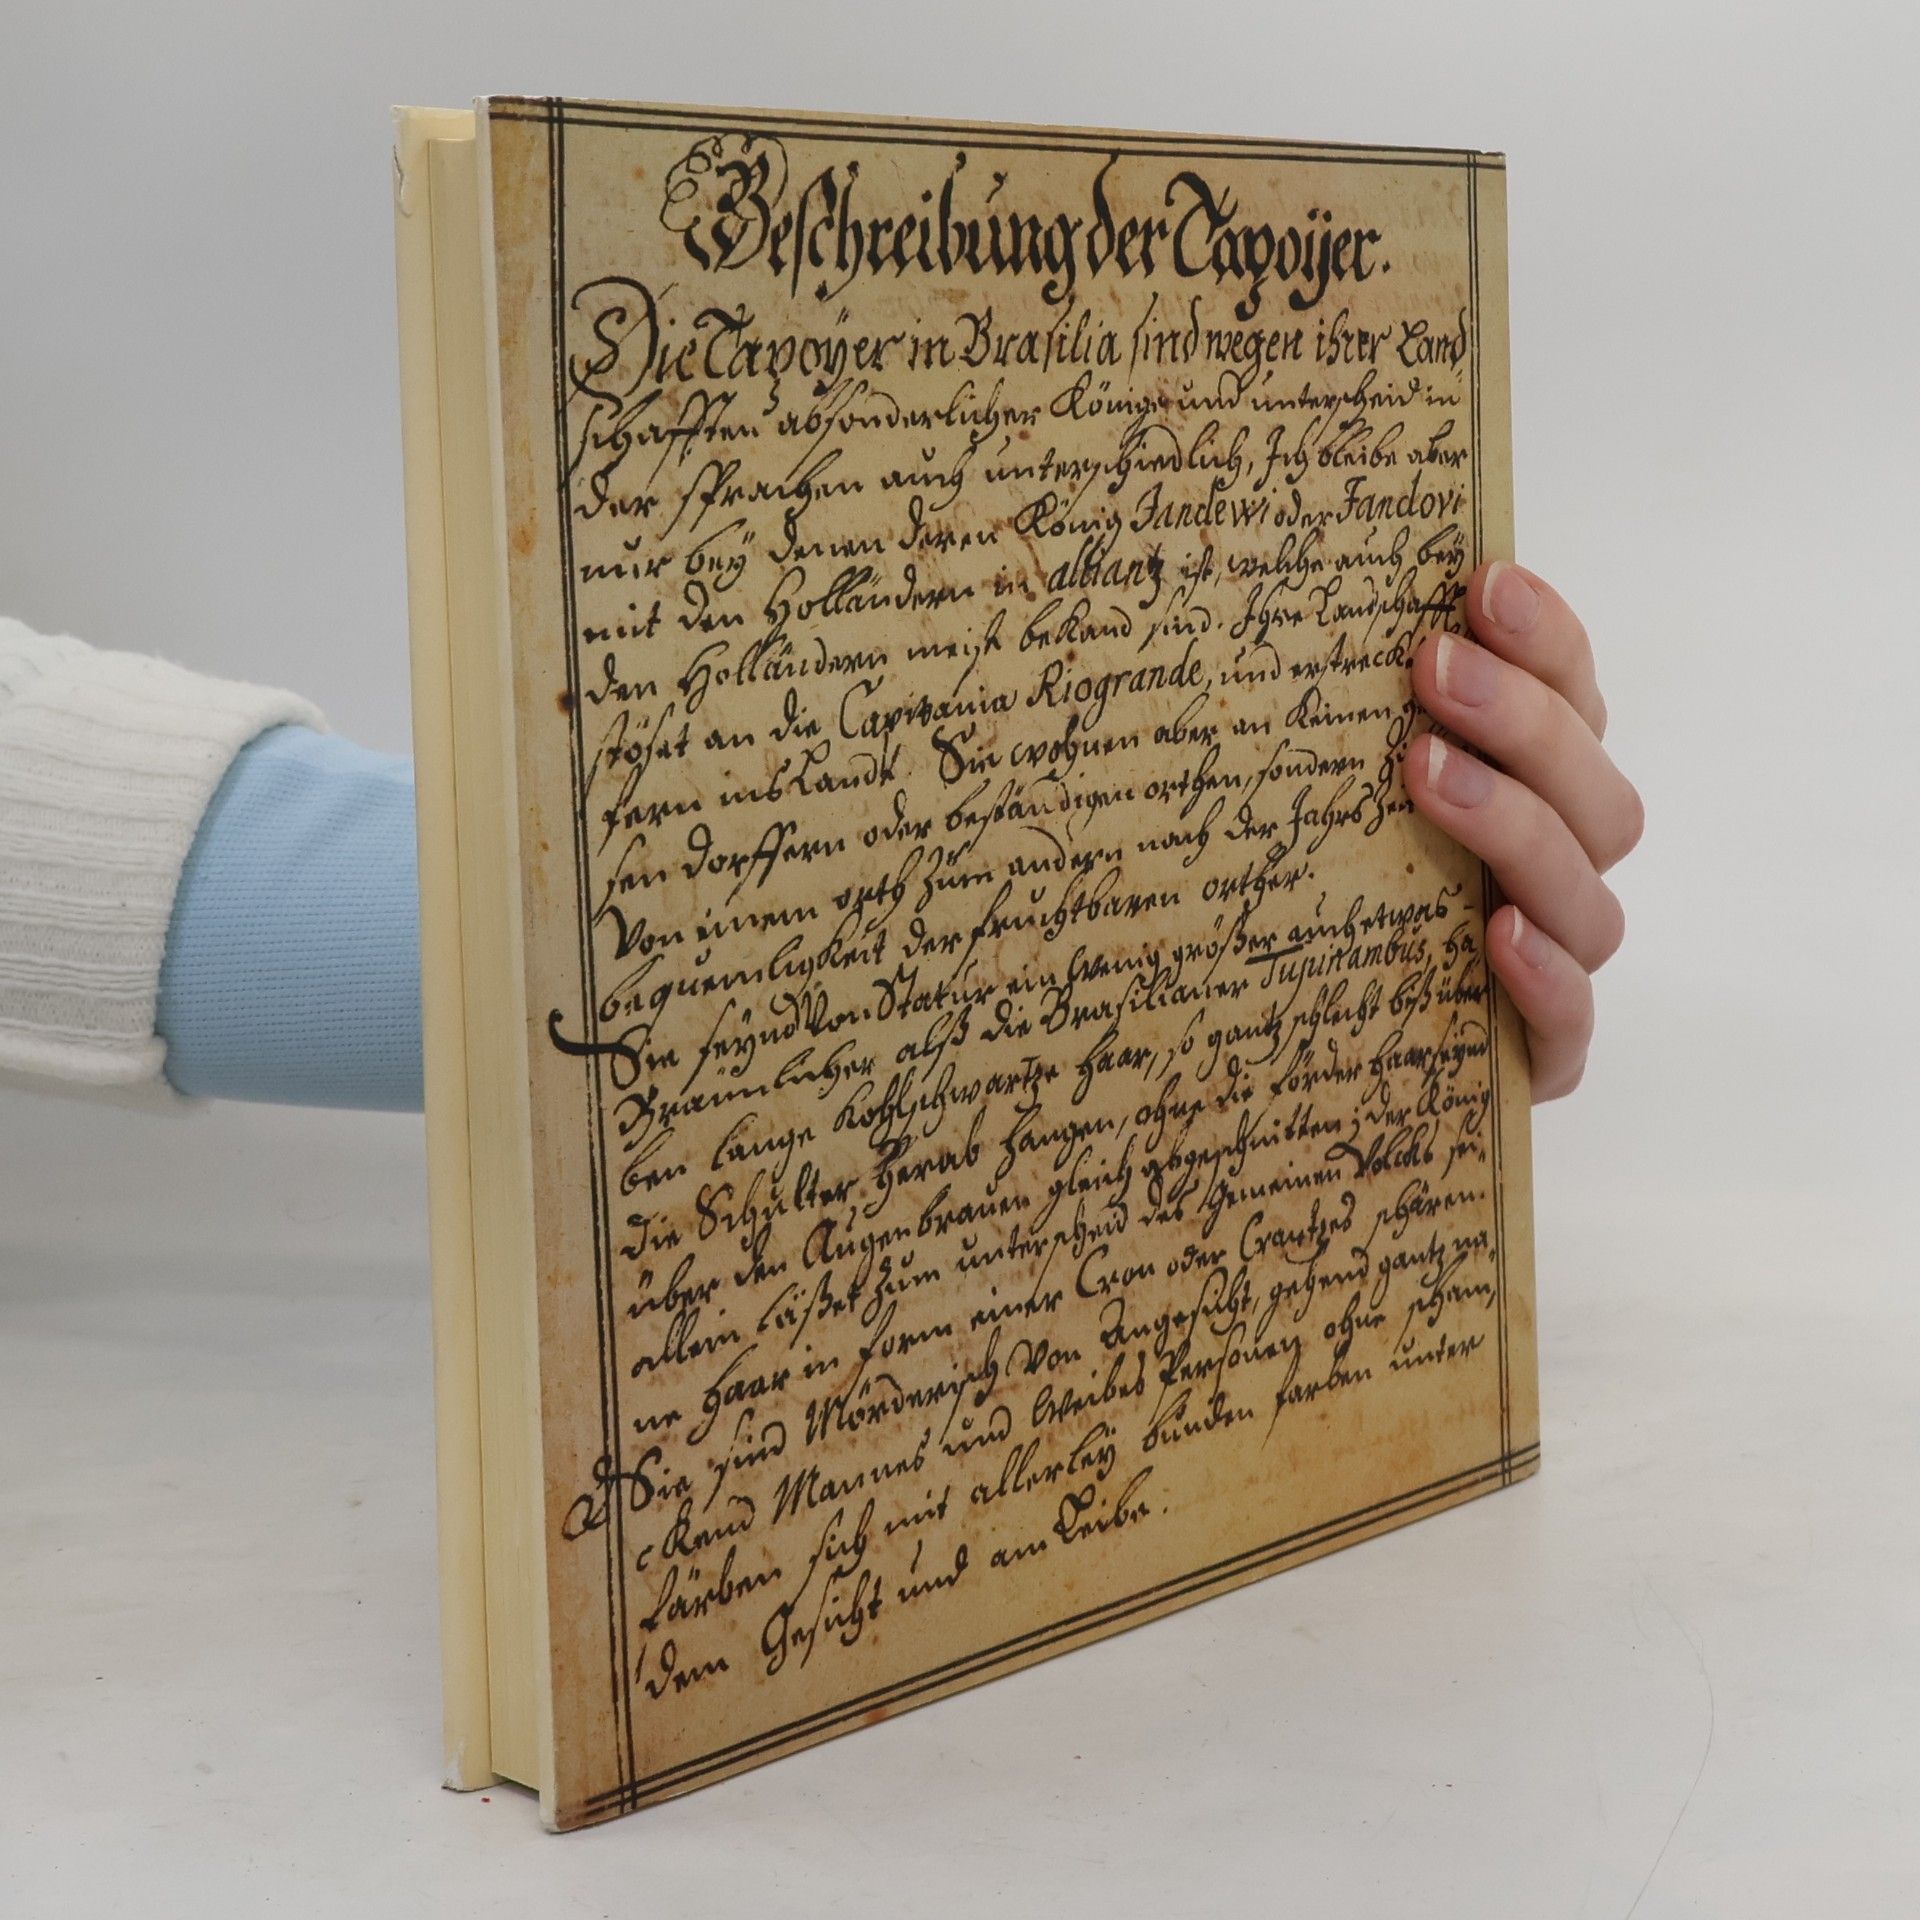 Beschreibung der Tapoÿer.
Die Tapoÿer in Brasilia sind wegen ihrer Land„
schafften absonderlicher Könige und unterscheid in
der sprachen auch unterschiedlich, Ich bleibe aber
nur beÿ denen deren König Jandewi oder Jandovi
mit den Holländern in alliantz ist, welche auch beÿ
den Holländern meist bekand sind. Ihre Landschafft
stöset an die Capitania Riogrande, und erstreckt
fern ins Landt. Sie wohnen aber an keinen
sen dorffern oder beständigen orthen, sondern
Von einem orth Zum andern nach der Jahrs Zeit
bequemligkeit der fruchtbaren orther.
Sie seÿnd Von Statur ein wenig größer auch etwas
Bräunlicher alß die Brasilianer Tupinambus, ha„
ben lange kohlschwartze Haar, so gantz schlecht biß über
die Schulter Herab hangen, ohne die förder Haar seynd
über den Augenbrauen gleich abgeschnitten; der König
allein läßet Zum unterscheid des Gemeinen Volcks sei„
ne Haar in form einer Cron oder Crantzes schären.
Sie sind Mörderisch Von Angesicht, gehend gantz na„
ckend Mannes und Weibes Personen ohne scham,
färben sich mit allerleÿ bunden farben unter
dem Gesicht und am Leibe.